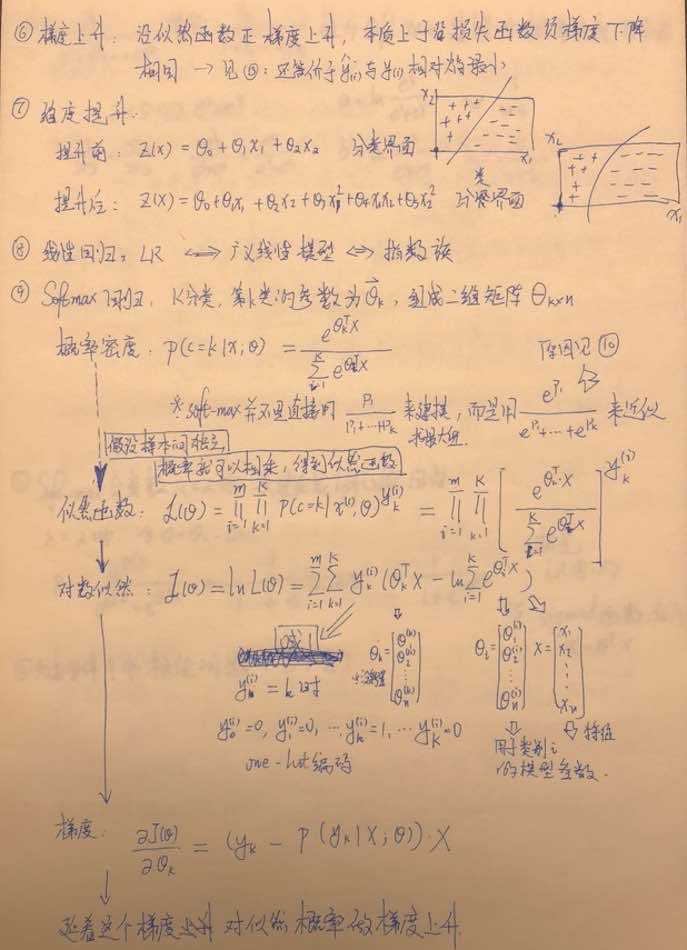 ⑥ 梯度上升: 沿似然函数正梯度上升, 本质上于沿损失函数负梯度下降
相同 → 见⑤: 还等价于 ŷ(i) 与 y(i) 相对熵最小
⑦ 维度提升.
提升前: Z(x) = θ₀ + θ₁x₁ + θ₂x₂ 分类界面
x₂ x₁
提升后: Z(x) = θ₀ + θ₁x₁ + θ₂x₂ + θ₃x₁² + θ₄x₁x₂ + θ₅x₂² 分类界面
x₂ x₁
⑧ 线性回归, LR ⟺ 广义线性模型 ⟺ 指数族
⑨ Softmax回归, K分类, 第k类的参数为 θ⃗ₖ, 组成二维矩阵 θₖₓₙ
概率密度: p(c=k|x;θ) = e^{θₖᵀx} / Σ_{i=1}^{K} e^{θᵢᵀx} 原因见⑩
※ soft-max 并不是直接用 P₁/(P₁+…+Pₖ) 来建模, 而是用 e^{P₁}/(e^{P₁}+…+e^{Pₖ}) 来近似
求最大值.
假设样本间独立,
概率就可以相乘, 得到似然函数
似然函数: L(θ) = ∏_{i=1}^{m} ∏_{k=1}^{K} p(c=k|x^{(i)},θ)^{yₖ^{(i)}} = ∏_{i=1}^{m} ∏_{k=1}^{K} [e^{θₖᵀ·x} / Σ_{i=1}^{K} e^{θᵢᵀx}]^{yₖ^{(i)}}
对数似然: J(θ) = ln L(θ) = Σ_{i=1}^{m} Σ_{k=1}^{K} yₖ^{(i)} (θₖᵀx − ln Σ_{i=1}^{K} e^{θᵢᵀx})
y^{(i)} = k 时
θₖ = [θ₁^{(k)} θ₂^{(k)} ⋮ θₙ^{(k)}] θᵢ = [θ₁^{(i)} θ₂^{(i)} ⋮ θₙ^{(i)}] x = [x₁ x₂ ⋮ xₙ]
y₀^{(i)}=0, y₁^{(i)}=0, … yₖ^{(i)}=1, … y_K^{(i)}=0
用于类别i 特征
one-hot编码
的模型参数.
梯度: ∂J(θ)/∂θₖ = (yₖ − P(yₖ|x;θ))·x
延着这个梯度上升 对似然概率做梯度上升.